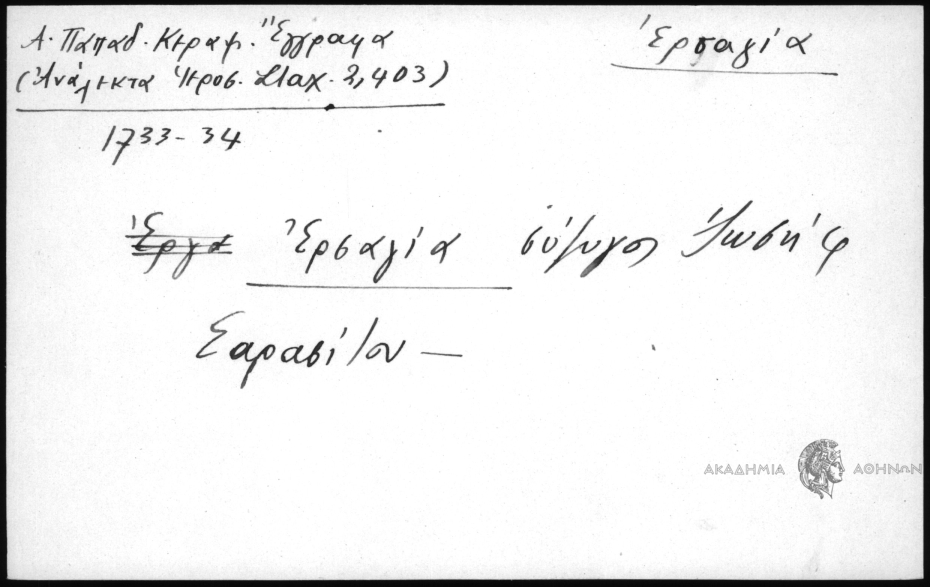 Α. Παπαδ. Κεραμ. Ἔγγραφα
Ἐρσαλία
(Ἀνάλεκτα Ἱεροσ. Σταχ. 3, 403)
1733-34
Ἐργα Ἐρσαλία σύζυγος Ἰωσήφ
ΑΚΑΔΗΜΙΑ ΑΘΗΝΩΝ